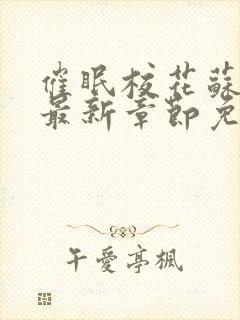 催眠校花蘇
最新章節免
午愛亭楓